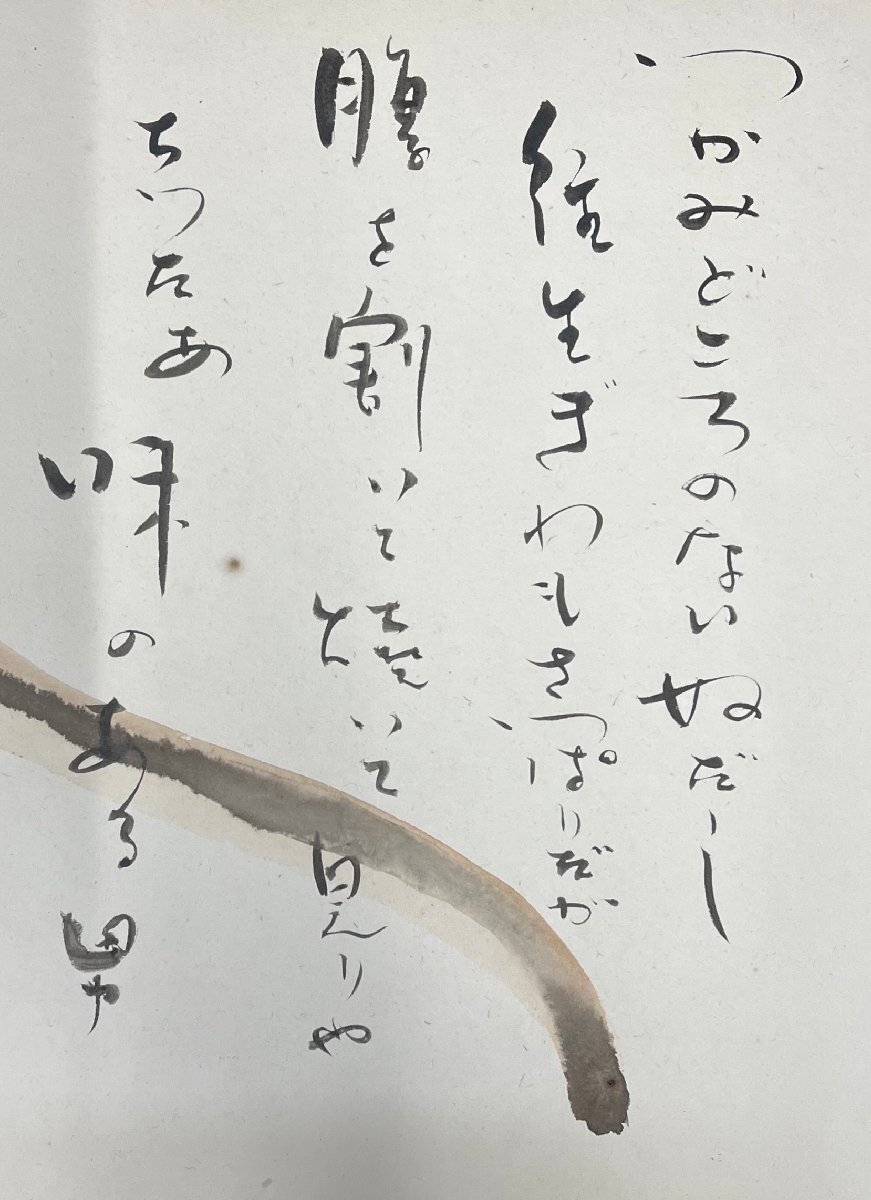 つかみどころのないぬだーし
往生ぎわもさっぱりだが
腹を割いて焼いて見りや
ちつたあ味のある男